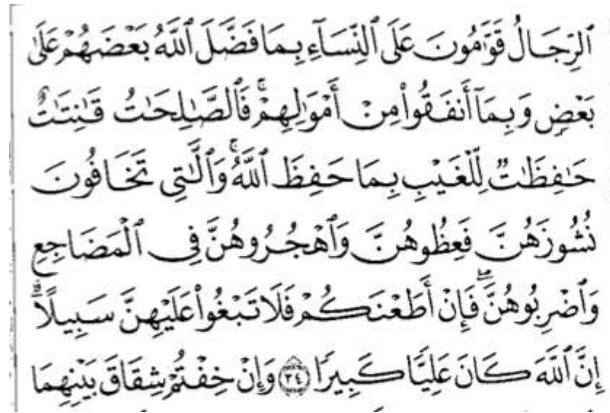 ٱلرِّجَالُ قَوَّٰمُونَ عَلَى ٱلنِّسَآءِ بِمَا فَضَّلَ ٱللَّهُ بَعْضَهُمْ عَلَىٰ
بَعْضٍ وَبِمَآ أَنفَقُوا۟ مِنْ أَمْوَٰلِهِمْ ۚ فَٱلصَّٰلِحَٰتُ قَٰنِتَٰتٌ
حَٰفِظَٰتٌ لِّلْغَيْبِ بِمَا حَفِظَ ٱللَّهُ ۚ وَٱلَّٰتِى تَخَافُونَ
نُشُوزَهُنَّ فَعِظُوهُنَّ وَٱهْجُرُوهُنَّ فِى ٱلْمَضَاجِعِ
وَٱضْرِبُوهُنَّ ۖ فَإِنْ أَطَعْنَكُمْ فَلَا تَبْغُوا۟ عَلَيْهِنَّ سَبِيلًا ۗ
إِنَّ ٱللَّهَ كَانَ عَلِيًّا كَبِيرًا ۝٣٤ وَإِنْ خِفْتُمْ شِقَاقَ بَيْنِهِمَا